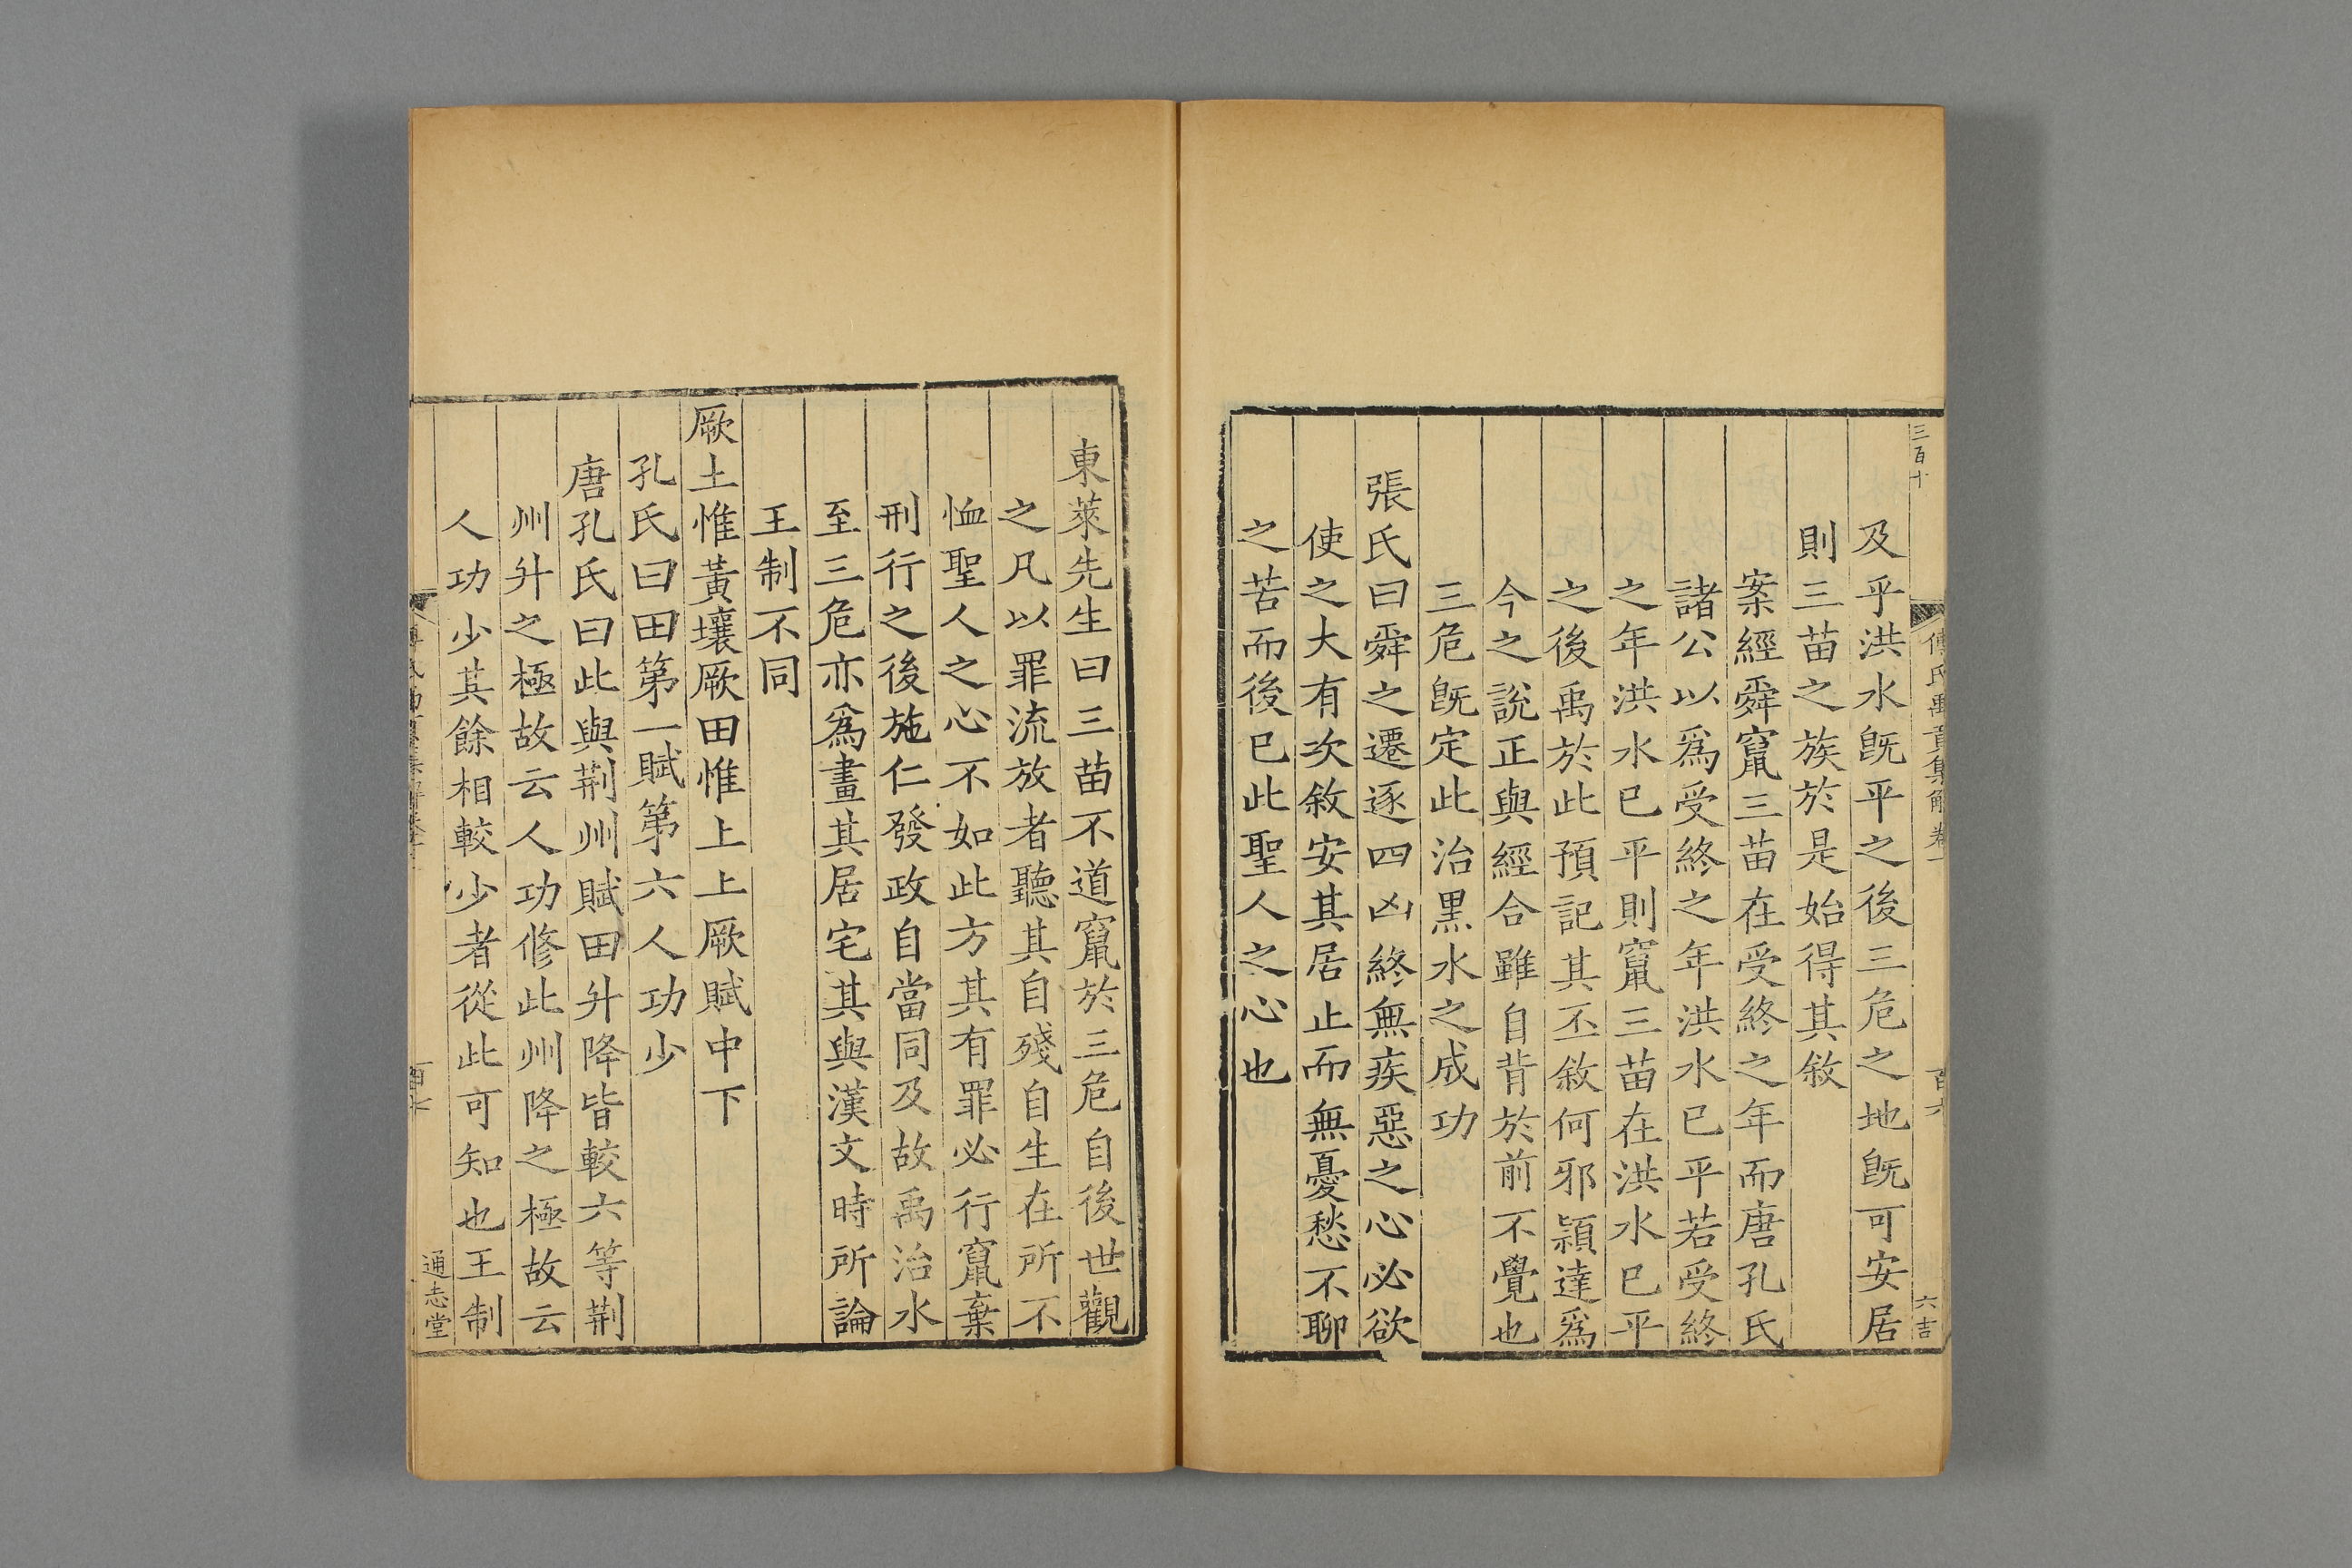 三百十
傅氏禹貢集解卷一
百六
六吉
及乎洪水旣平之後三危之地旣可安居
則三苗之族於是始得其敘
案經舜竄三苗在受終之年而唐孔氏
諸公以爲受終之年洪水已平若受終
之年洪水已平則竄三苗在洪水已平
之後禹於此預記其丕敘何邪頴達爲
今之說正與經合雖自背於前不覺也
三危旣定此治黑水之成功
張氏曰舜之遷逐四凶終無疾惡之心必欲
使之大有次敘安其居止而無憂愁不聊
之苦而後已此聖人之心也
東萊先生曰三苗不道竄於三危自後世觀
之凡以罪流放者聽其自殘自生在所不
恤聖人之心不如此方其有罪必行竄棄
刑行之後施仁發政自當同及故禹治水
至三危亦爲畫其居宅其與漢文時所論
王制不同
厥土惟黃壤厥田惟上上厥賦中下
孔氏曰田第一賦第六人功少
唐孔氏曰此與荆州賦田升降皆較六等荆
州升之極故云人功修此州降之極故云
人功少其餘相較少者從此可知也王制
通志堂